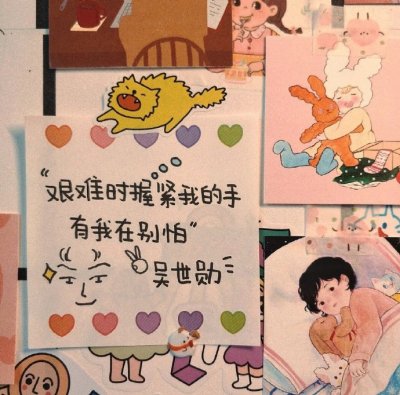 “艰难时握紧我的手
有我在别怕”
吴世勋